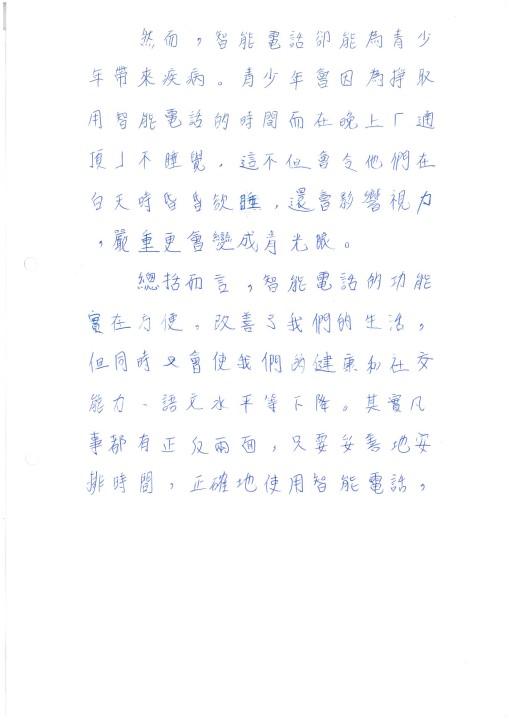 然而，智能電話卻能為青少
年帶來疾病。青少年會因為掙取
用智能電話的時間而在晚上「通
頂」不睡覺，這不但會令他們在
白天時昏昏欲睡，還會影響視力
，嚴重更會變成青光眼。
總括而言，智能電話的功能
實在方便，改善了我們的生活，
但同時又會使我們的健康和社交
能力、語文水平等下降。其實凡
事都有正反兩面，只要妥善地安
排時間，正確地使用智能電話，